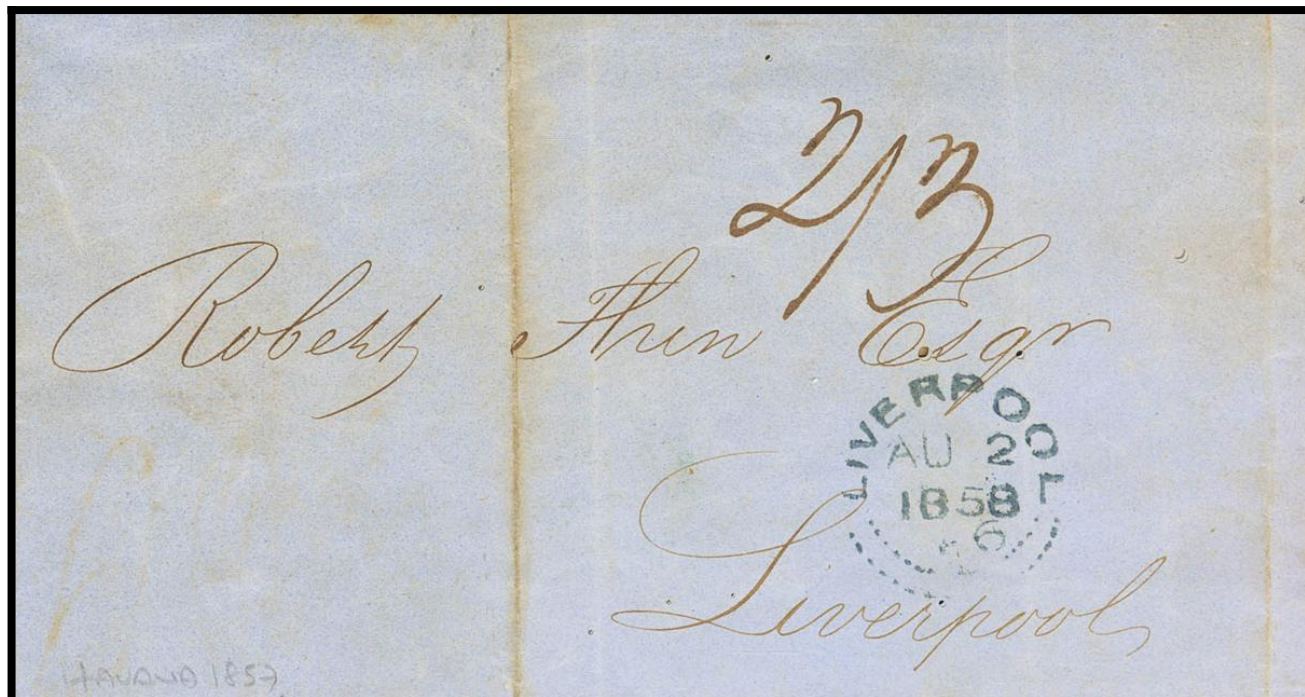 2/3
Robert Thin Esqr
LIVERPOOL
AU 2
1858
6
Liverpool
HAVANA 1857